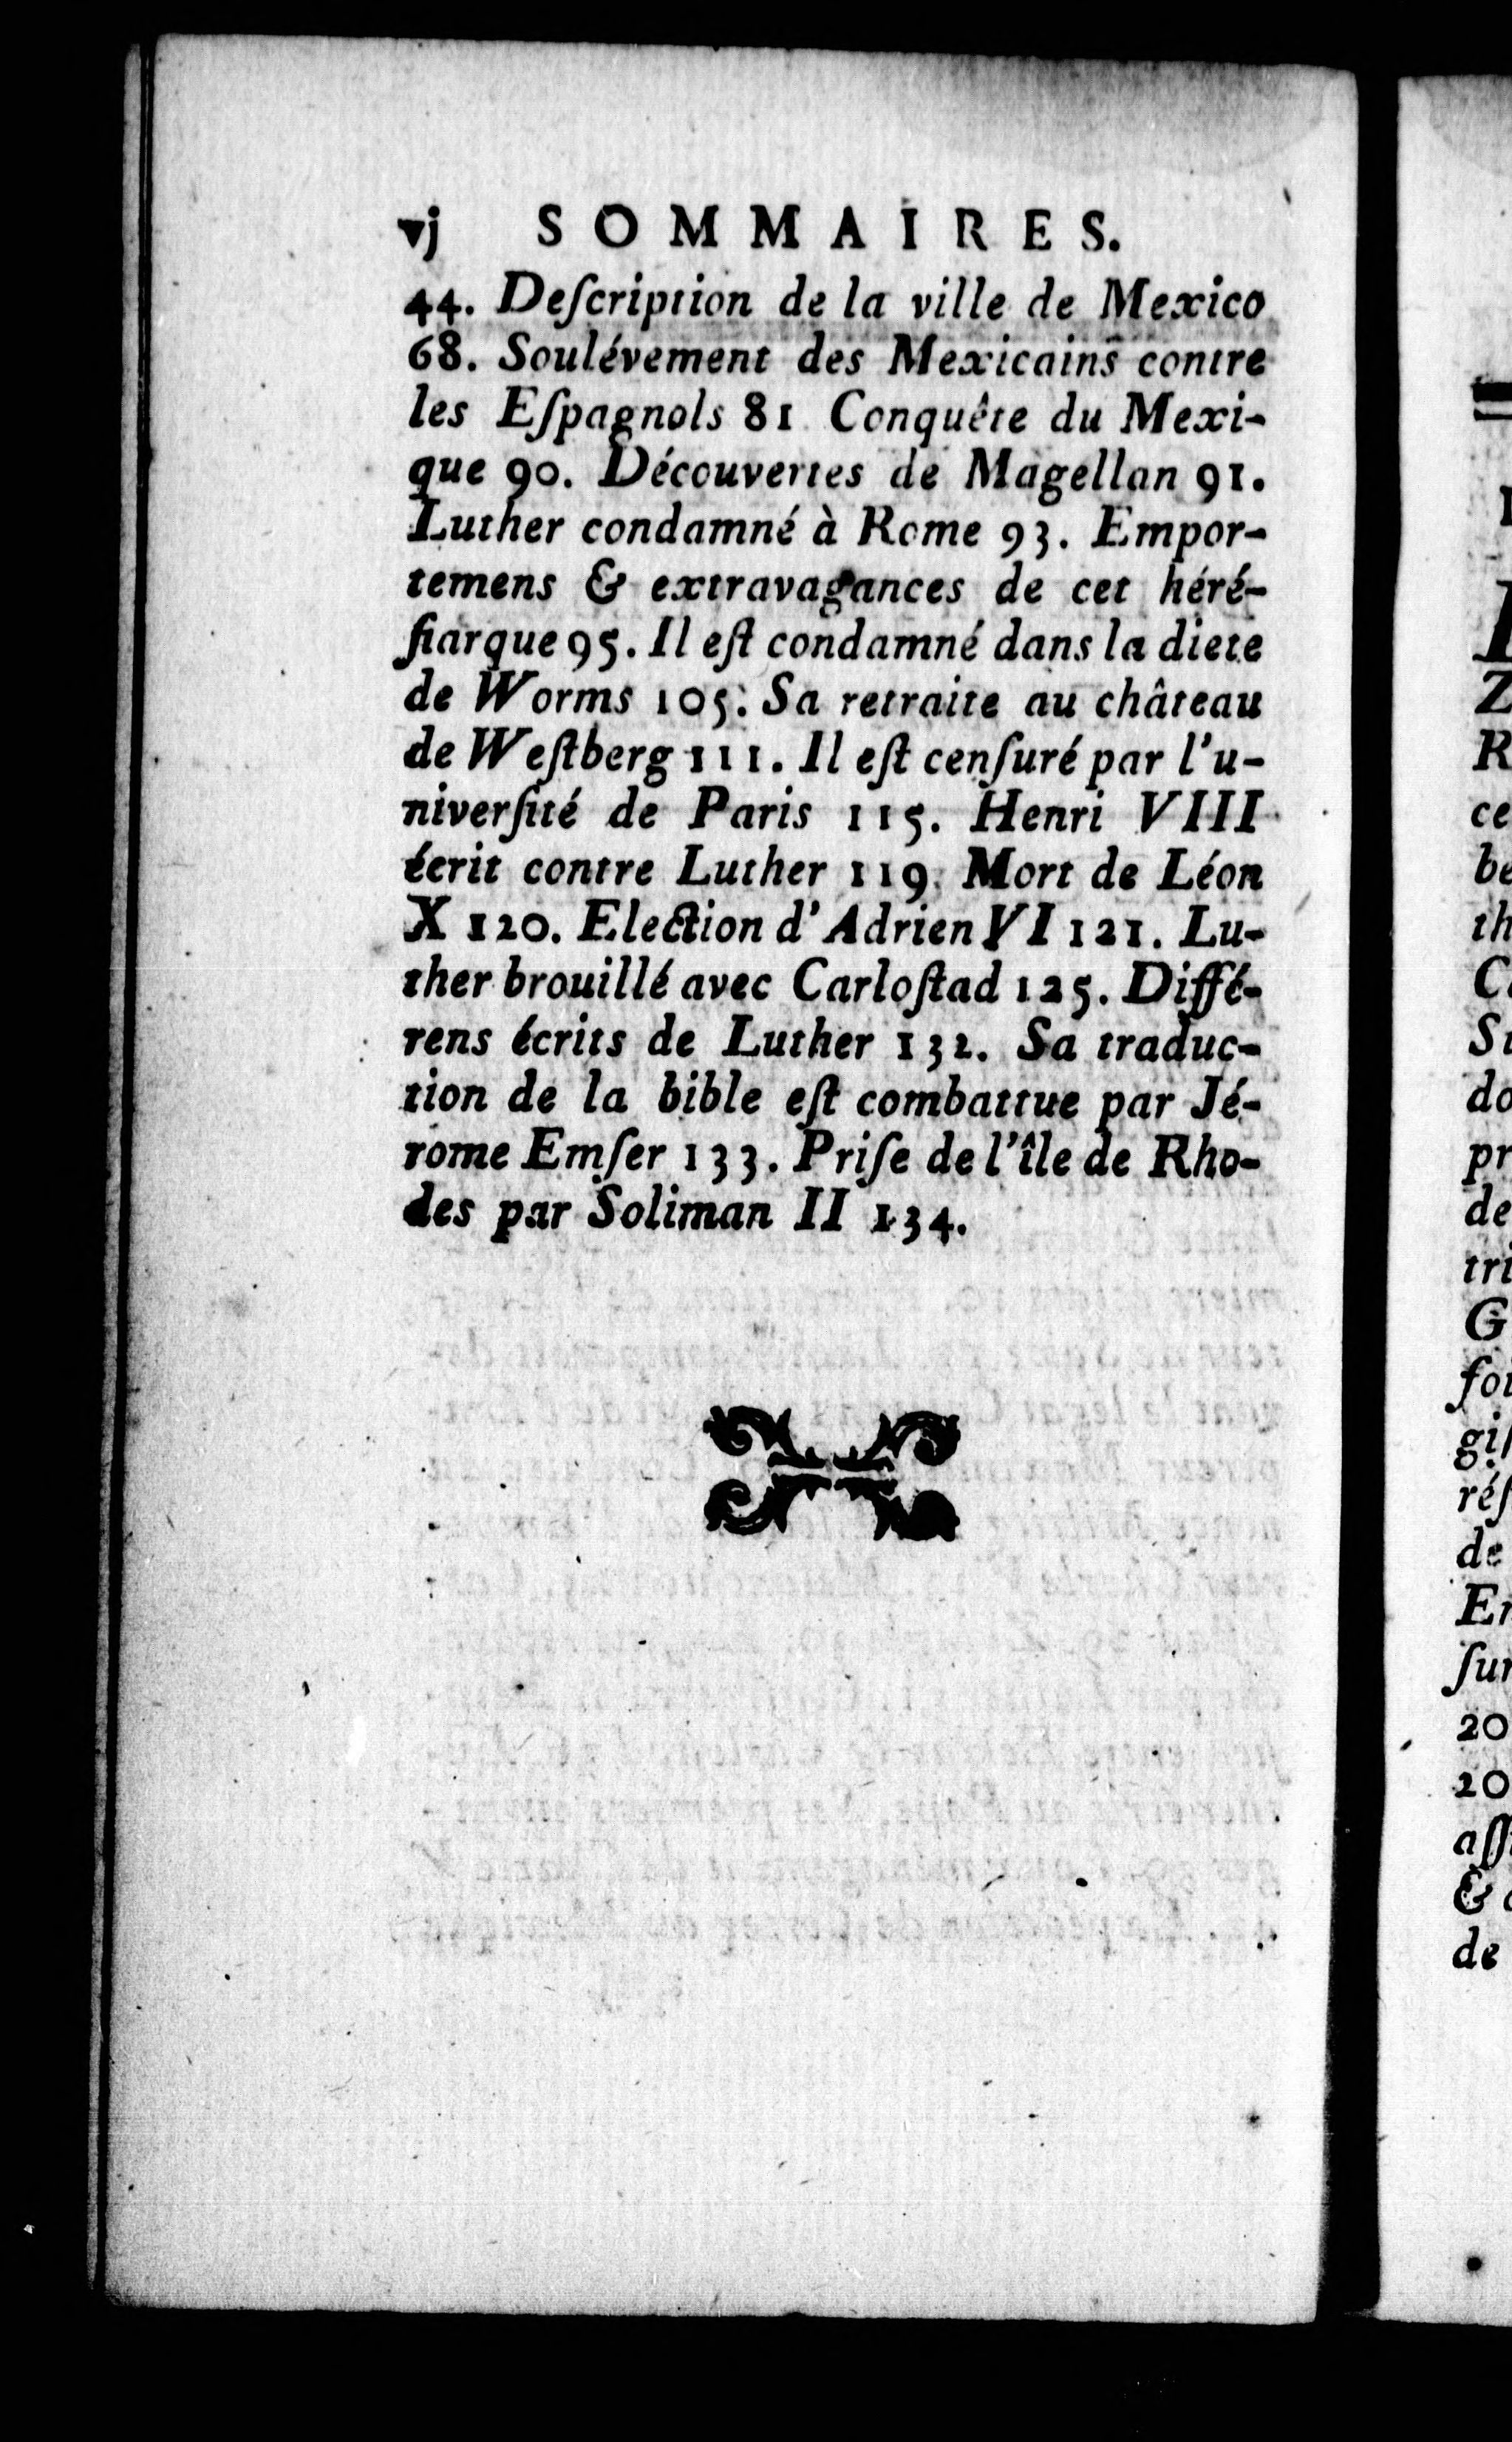 vj SOMMAIRES.
44. Deſcription de la ville de Mexico
68. Soulévement des Mexicains contre
les Eſpagnols 81 Conquête du Mexi-
que 90. Découvertes de Magellan 91.
Luther condamné à Rome 93. Empor-
temens & extravagances de cet héré-
ſiarque 95. Il eſt condamné dans la diete
de Worms 105. Sa retraite au château
de Weſtberg 111. Il eſt cenſuré par l'u-
niverſité de Paris 115. Henri VIII
écrit contre Luther 119. Mort de Léon
X 120. Election d'Adrien VI 121. Lu-
ther brouillé avec Carloſtad 125. Diffé-
rens écrits de Luther 132. Sa traduc-
tion de la bible eſt combattue par Jé-
rome Emſer 133. Priſe de l'île de Rho-
des par Soliman II 134.
Z
R
ce
be
th
do
pr
de
tri
G
de
20
20
&
de